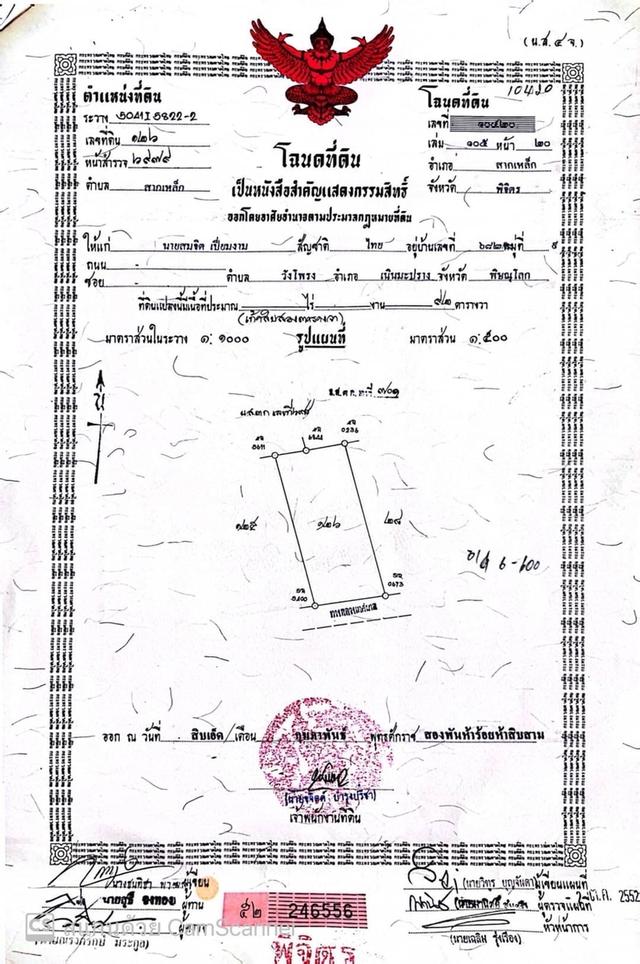 (น.ส. ๔ จ.)
ตำแหน่งที่ดิน
ระวาง 5041 I 5822-2
เลขที่ดิน ๑๒๖
หน้าสำรวจ ๒๙๗๙
ตำบล สากเหล็ก
โฉนดที่ดิน
10420
เลขที่ ๑๐๔๒๐
เล่ม ๑๐๕ หน้า ๒๐
อำเภอ สากเหล็ก
จังหวัด พิจิตร
โฉนดที่ดิน
เป็นหนังสือสำคัญแสดงกรรมสิทธิ์
ออกโดยอาศัยอำนาจตามประมวลกฎหมายที่ดิน
ให้แก่ นายสมจิต เปี่ยมงาม สัญชาติ ไทย อยู่บ้านเลขที่ ๖๘๒ หมู่ที่ ๙
ถนน -
ซอย - ตำบล วังโพรง อำเภอ เนินมะปราง จังหวัด พิษณุโลก
ที่ดินแปลงนี้มีเนื้อที่ประมาณ - ไร่ - งาน ๙๒ ตารางวา
(เก้าสิบสองตารางวา)
มาตราส่วนในระวาง ๑: ๑๐๐๐ รูปแผนที่ มาตราส่วน ๑: ๕๐๐
น
0236
๑๒๕ ๑๒๖ ๒๘
0673
ทางหลวงเทศบาล
ออก ณ วันที่ สิบเอ็ด เดือน กุมภาพันธ์ พุทธศักราช สองพันห้าร้อยห้าสิบสาม
เจ้าพนักงานที่ดิน
ผู้เขียน
ผู้ทาน
(นายวิทูร บุญจันดา) ผู้เขียนแผนที่
ผู้ตรวจแผนที่
หัวหน้าการ
(นายเฉลิม รุ่งเรือง)
ค. 2552
๕๒ 246556
พิจิตร
สแกนด้วย CamScanner